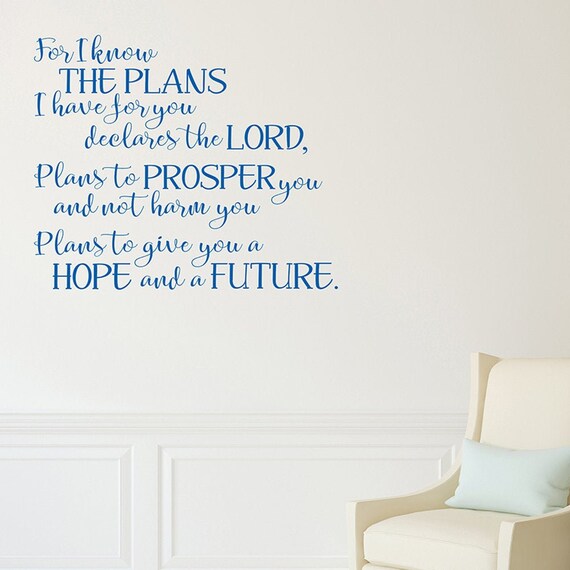 For I know
THE PLANS
I have for you
declares the LORD,
Plans to PROSPER you
and not harm you
Plans to give you a
HOPE and a FUTURE.